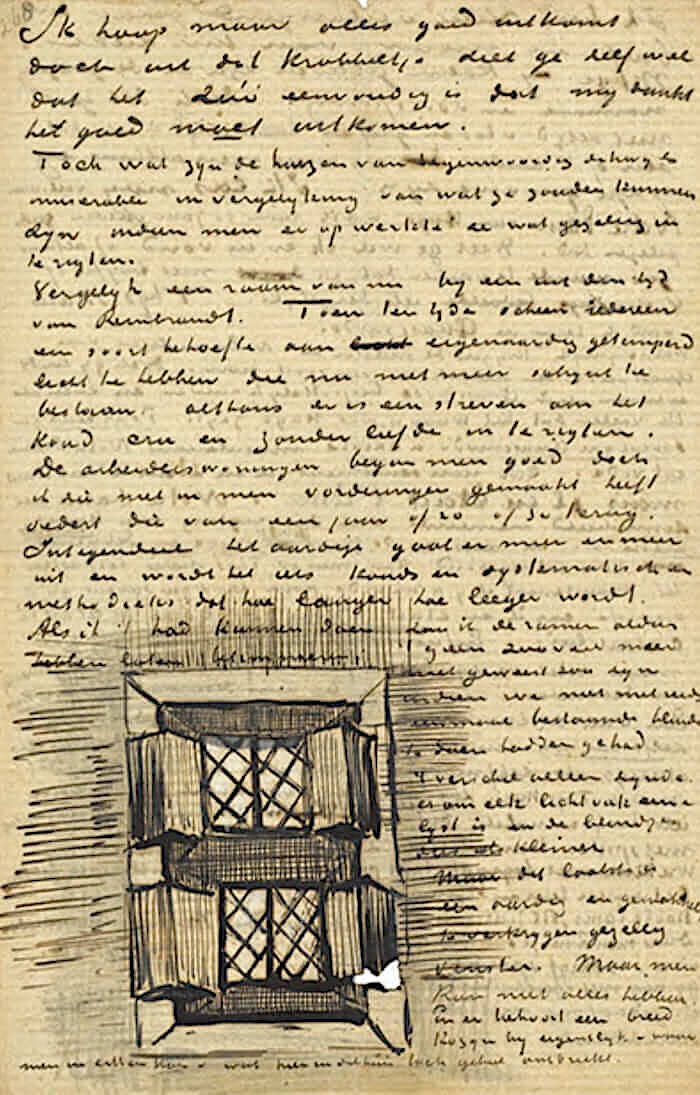 268
Ik hoop maar alles goed uitkomt
doch uit dit krabbeltje ziet ge zelf wel
dat het zóó eenvoudig is dat mij dunkt
het goed moet uitkomen.
Toch wat zyn de huizen van tegenwoordig
miserable in vergelyking van wat ze zouden kunnen
zyn indien men er op werkte ze wat gezellig in
te rigten.
Vergelyk een raam van nu by een uit den tyd
van Rembrandt. Toen ter tyde scheen iedereen
een soort behoefte aan eigenaardig getemperd
licht te hebben die nu niet meer schynt te
bestaan althans er is een streven om het
koud cru en zonder liefde in te rigten.
De arbeiderswoningen begon men goed doch
ik zie niet in men vorderingen gemaakt heeft
sedert die van een jaar of 20 of 30 terug.
Integendeel het aardige gaat er meer en meer
uit en wordt het iets kouds en systematisch en
methodieks dat hoe langer hoe leeger wordt.
Als ik 't had kunnen doen dan ik de ramen aldus
hebben laten
geen zooveel meer
niet geweest zou zyn
indien we niet met reeds
eenmaal bestaande blinden
te doen hadden gehad
't verschil alleen zynde
er om elk lichtvak eene
lyst is en de blindjes
dus iets kleiner
Maar dit laatste is
een aardig en
te verkrygen gezellig
venster. Maar men
kan niet alles hebben
en er behoort een breed
kozyn by eigenlyk - waar
men in zitten kan - wat hier in dit huis toch geheel ontbreekt.